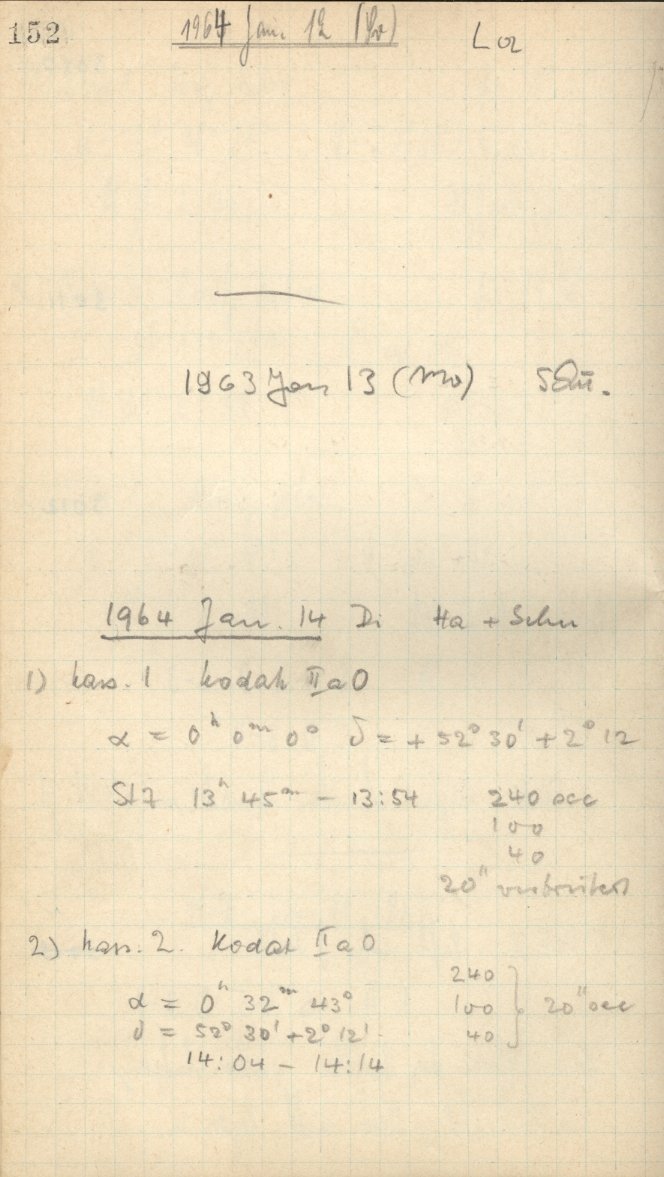 152 1964 Jan. 12 (So) Loz
1963 Jan 13 (Mo) Schü.
1964 Jan. 14 Di Ha + Schu
1) Kass. 1 Kodak IIaO
α = 0ʰ 0ᵐ 0ˢ δ = + 52° 30' + 2° 12
StZ 13ʰ 45ᵐ - 13:54 240 sec
100
40
20" verbreitert
2) Kass. 2. Kodak IIaO
240
α = 0ʰ 32ᵐ 43ˢ 100 } 20" sec
δ = 52° 30' + 2° 12' 40
14:04 - 14:14